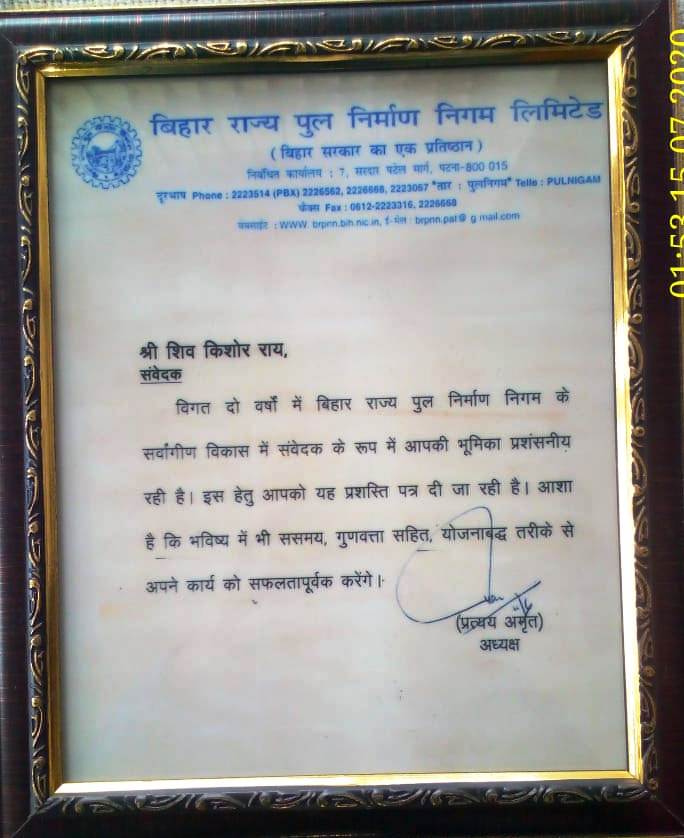 बिहार राज्य पुल निर्माण निगम लिमिटेड
( बिहार सरकार का एक प्रतिष्ठान )
निबंधित कार्यालय : 7, सरदार पटेल मार्ग, पटना-800 015
दूरभाष Phone : 2223514 (PBX) 2226562, 2226668, 2223067 *तार : पुलनिगम* Telle : PULNIGAM
फैक्स Fax : 0612-2223316, 2226668
वेबसाईट : WWW. brpnn.bih.nic.in, ई-मेल : brpnn.pat@ g mail.com
श्री शिव किशोर राय,
संवेदक
विगत दो वर्षो में बिहार राज्य पुल निर्माण निगम के
सर्वांगीण विकास में संवेदक के रूप में आपकी भूमिका प्रशंसनीय
रही है। इस हेतु आपको यह प्रशस्ति पत्र दी जा रही है। आशा
है कि भविष्य में भी ससमय, गुणवत्ता सहित, योजनाबद्ध तरीके से
अपने कार्य को सफलतापूर्वक करेंगे।
(प्रत्यय अमृत)
अध्यक्ष
01:53 15-07-2020